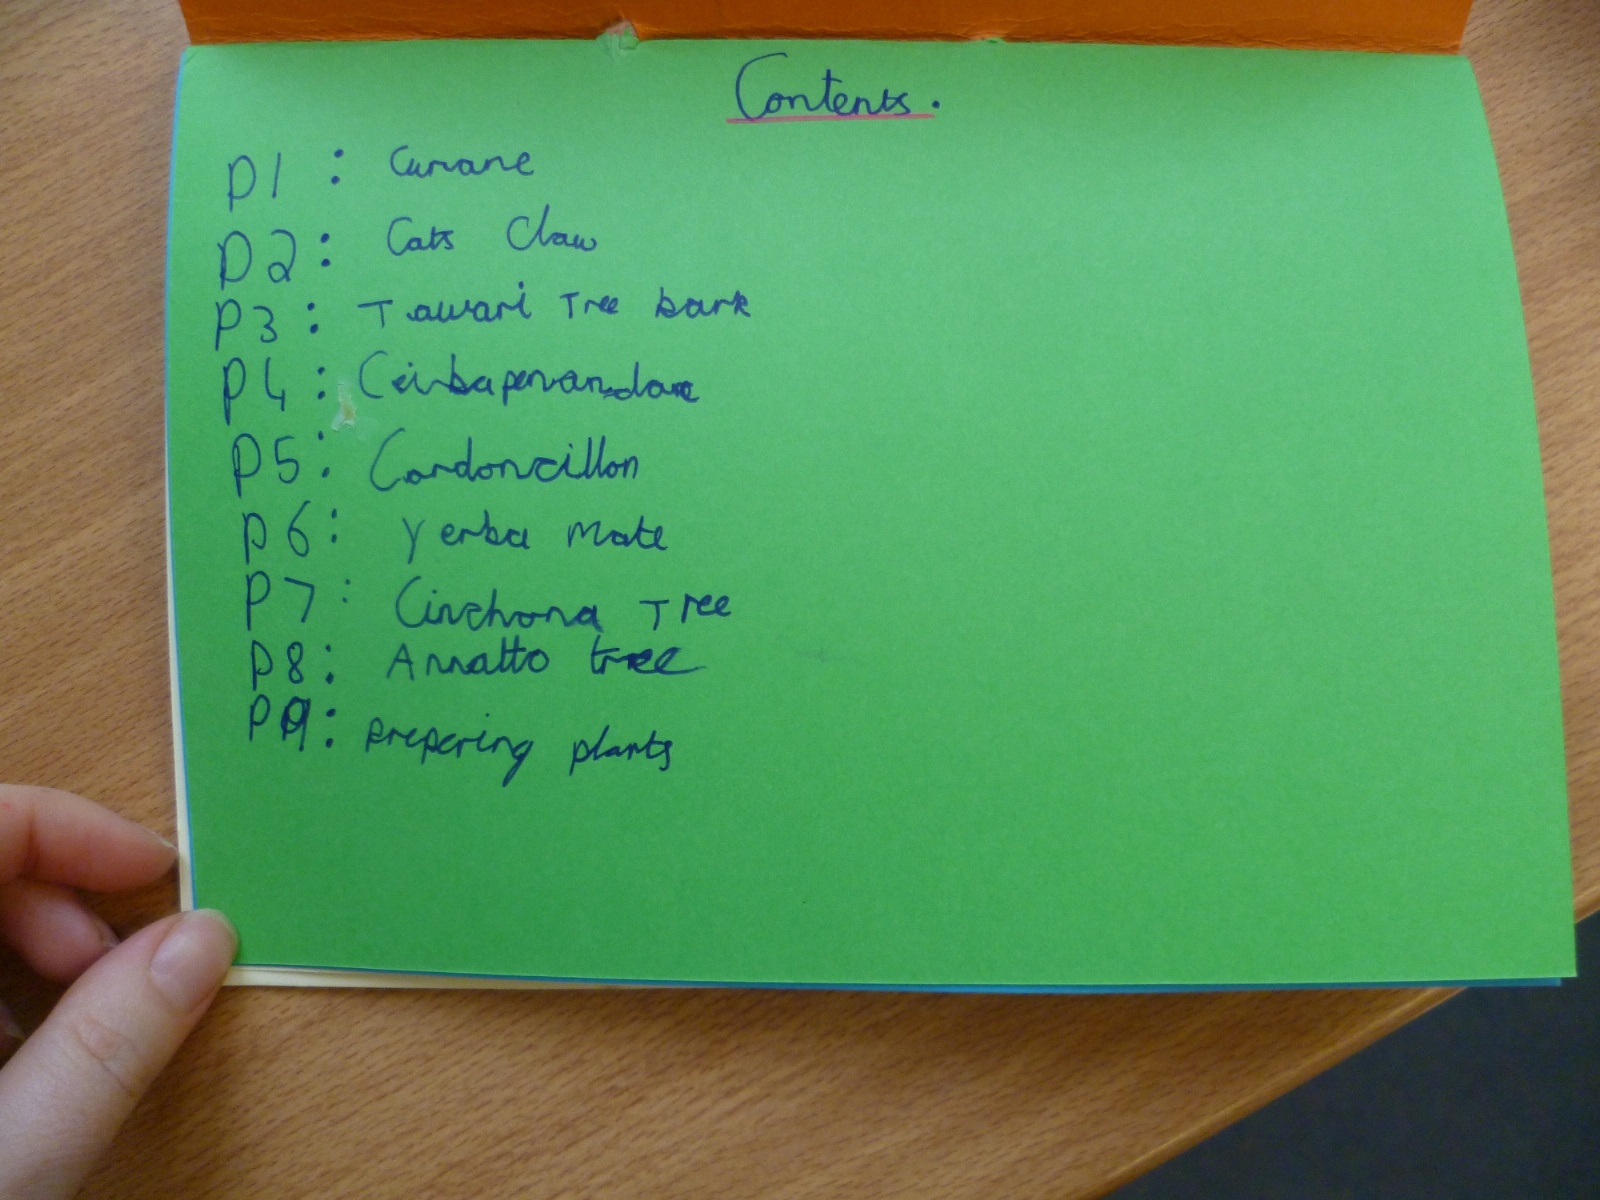 Contents.
P1 : Curare
P2 : Cats Claw
P3 : Tawari Tree bark
P4 :
P5 : Cordoncillon
P6 : Yerba Mate
P7 : Cinchona Tree
P8 : Annatto tree
P9 : prepering plants